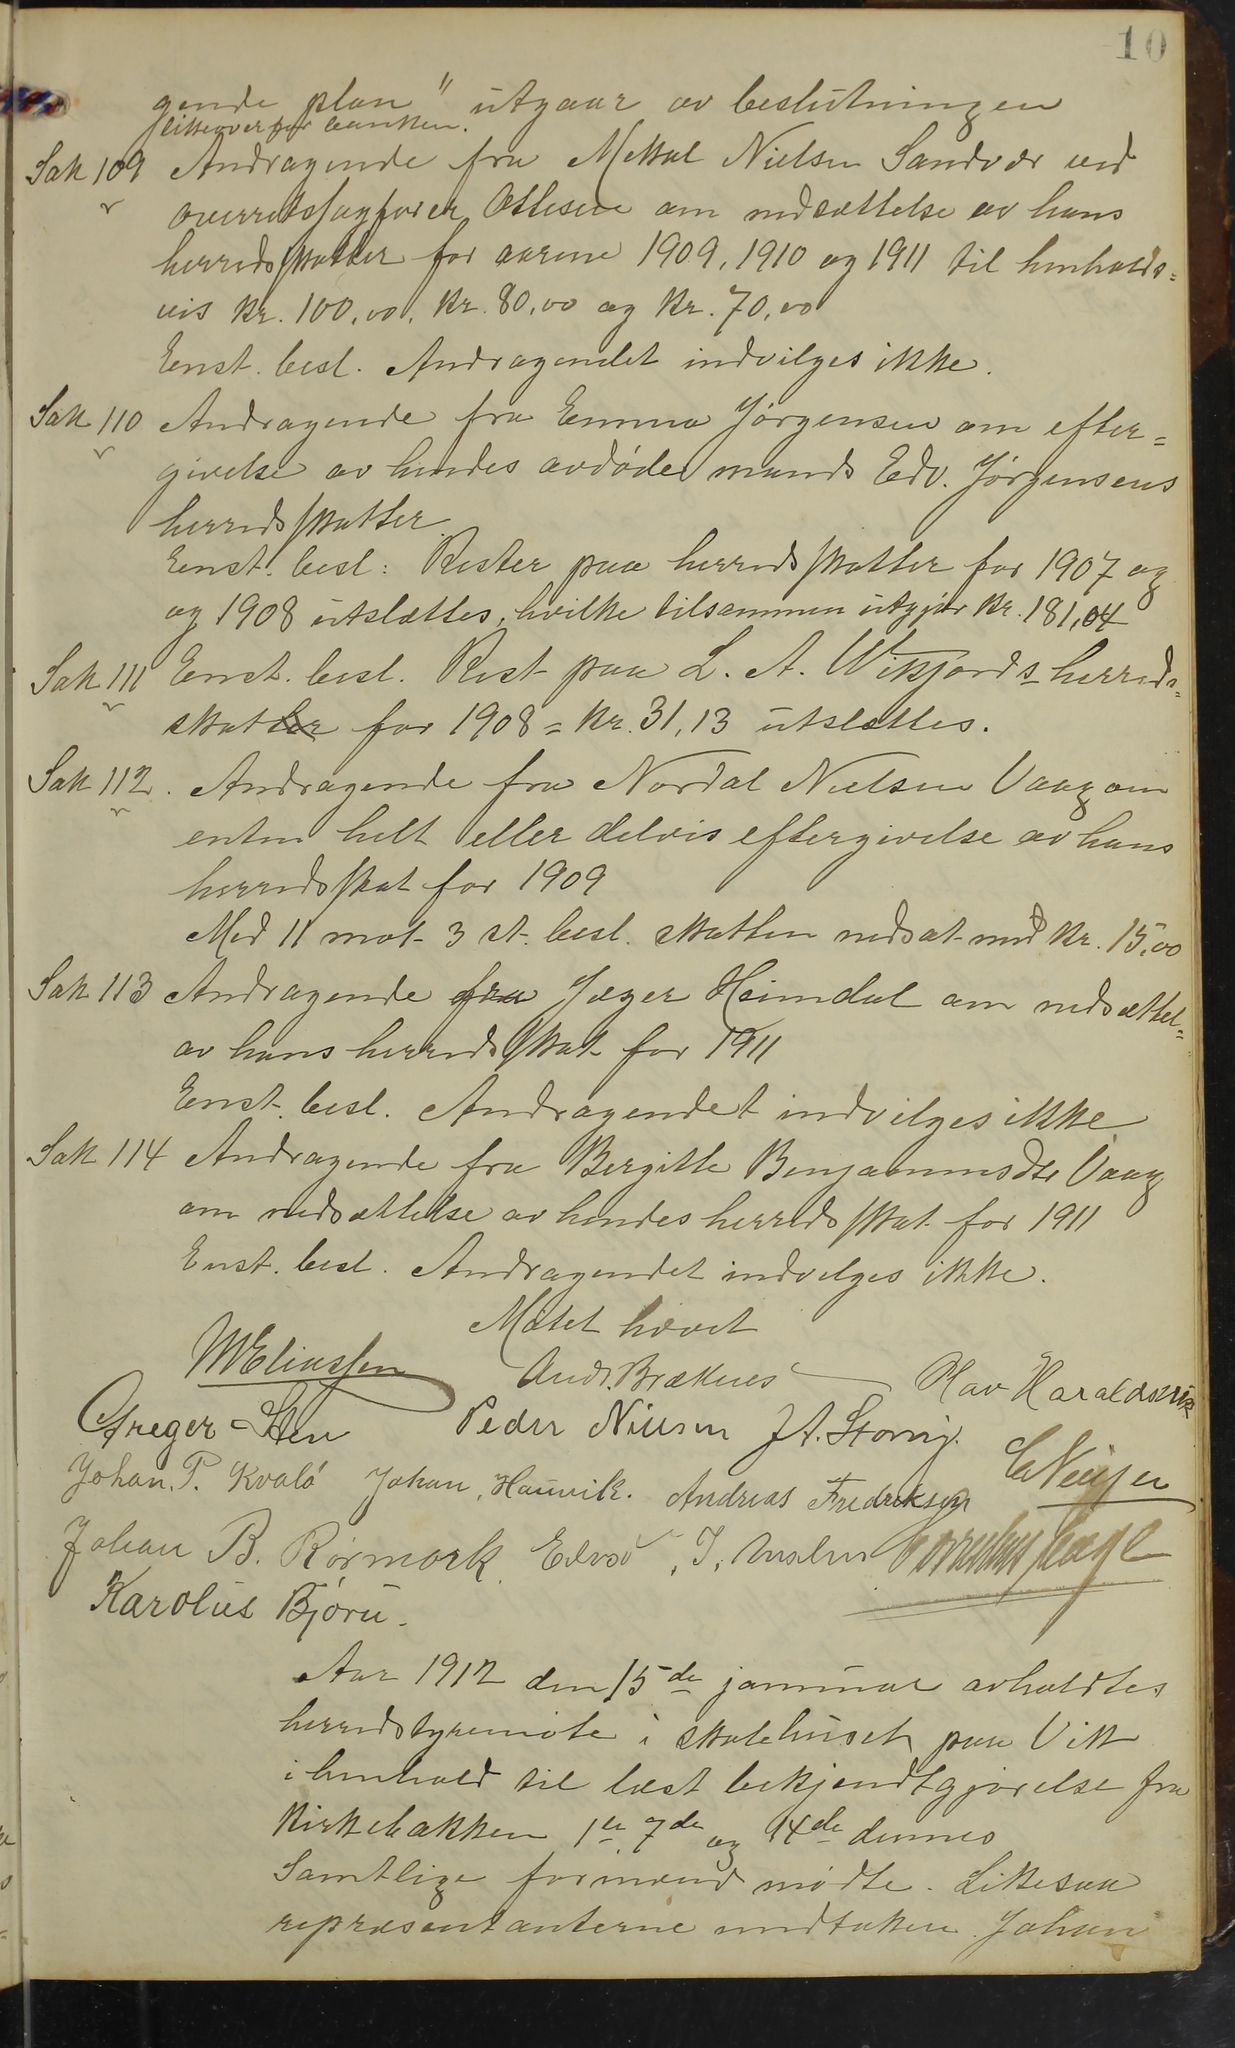 10
gende plan" utgaar av beslutningen
likeoverfor banken.
Sak 109 Andragende fra Mekal Nielsen Sandvær ved
overretssagfører Ottesen om nedsættelse av hans
herredsskatter for aarene 1909, 1910 og 1911 til henholds=
vis kr. 100,00, kr. 80,00 og kr. 70,00
Enst. besl. Andragendet indvilges ikke.
Sak 110 Andragende fra Emma Jørgensen om efter=
givelse av hendes avdøde mands Edv. Jørgensens
herredsskatter.
Enst. besl: Rester paa herredsskatter for 1907 og
og 1908 utslættes, hvilke tilsammen utgjør kr. 181,04
Sak 111 Enst. besl. Rest paa L. A. Wikfjords herreds=
skatter for 1908 = kr. 31,13 utslættes.
Sak 112. Andragende fra Nordal Nielsen Vaag om
enten helt eller delvis eftergivelse av hans
herredsskat for 1909
Med 11 mot 3 st. besl. skatten nedsat med kr. 15,00
Sak 113 Andragende fra Jæger Heimdal om nedsættel=
av hans herredsskat for 1911
Enst. besl. Andragendet indvilges ikke
Sak 114 Andragende fra Bergitte Benjaminsdtr Vaag
om nedsættelse av hendes herredsskat for 1911
Enst. besl. Andragendet indvilges ikke.
Møtet hævet
M Eliassen Andr. Bræknes Hav Haraldsvik
Greger Sten Peder Nilsen J A. Storvig.
Johan. P. Kvalø Johan, Haunvik. Andreas Fredriksen
Johan B. Rørmark, Edvard, J,
Karolus Bjøru.
Aar 1912 den 15de januar avholdtes
herredstyremøte i skolehuset paa Vik
i henhold til læst bekjendtgjørelse fra
Kirkebakken 1ste 7de og 14de dennes
Samtlige formænd mødte. Likesaa
repræsentanterne undtaken Johan